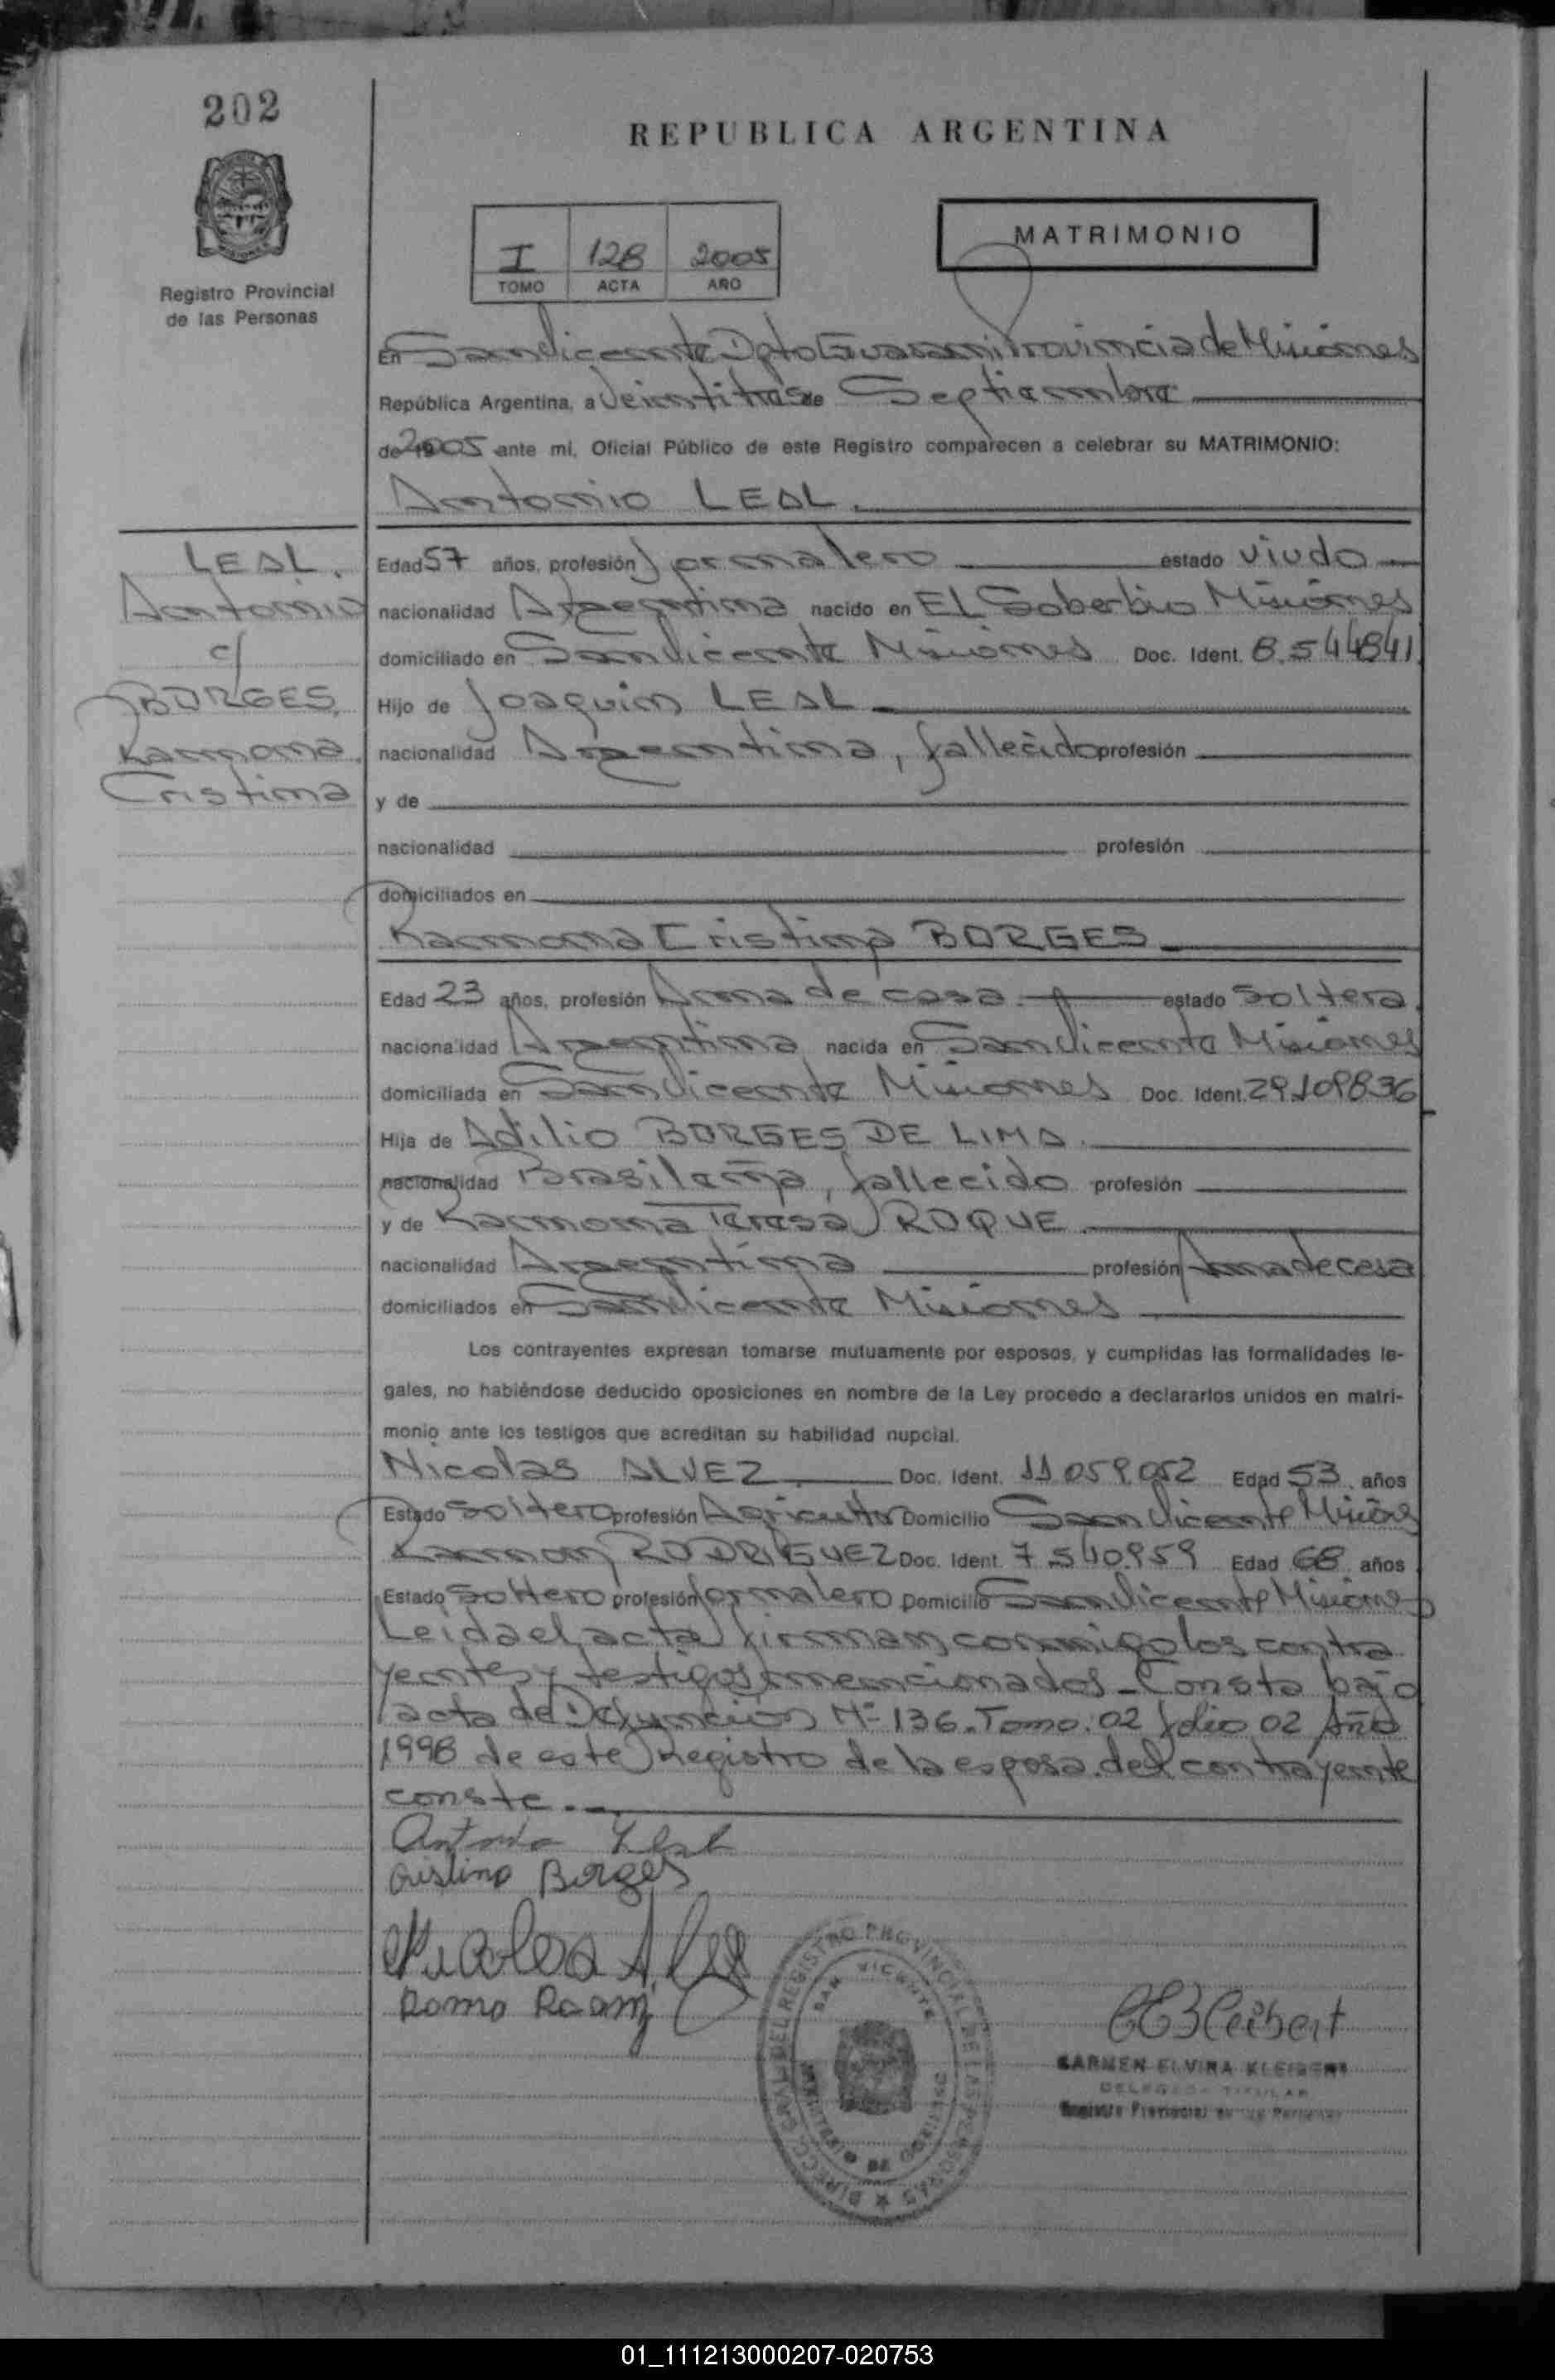 202
REPUBLICA ARGENTINA
MATRIMONIO
I 128 2005
TOMO ACTA AÑO
Registro Provincial
de las Personas
En San Vicente Dpto Guarani Provincia de Misiones
República Argentina, a Veintitrés de Septiembre
de 2005 ante mi, Oficial Público de este Registro comparecen a celebrar su MATRIMONIO:
Antonio LEAL.
LEAL.
Antonio
c/
BORGES,
Ramona
Cristina
Edad 57 años, profesión Jornalero estado viudo
nacionalidad Argentina nacido en El Soberbio Misiones
domiciliado en San Vicente Misiones Doc. Ident. 8.544841
Hijo de Joaquin LEAL
nacionalidad Argentina, fallecido profesión
y de
nacionalidad profesión
domiciliados en
Ramona Cristina BORGES
Edad 23 años, profesión Ama de casa. estado Soltera
nacionalidad Argentina nacida en San Vicente Misiones
domiciliada en San Vicente Misiones Doc. Ident. 29.109836
Hija de Adilio BORGES DE LIMA.
nacionalidad Brasileña, fallecido profesión
y de Ramona Teresa ROQUE
nacionalidad Argentina profesión Ama de casa
domiciliados en San Vicente Misiones
Los contrayentes expresan tomarse mutuamente por esposos, y cumplidas las formalidades le-
gales, no habiéndose deducido oposiciones en nombre de la Ley procedo a declararlos unidos en matri-
monio ante los testigos que acreditan su habilidad nupcial.
Nicolas ALVEZ. Doc. Ident. 11.059.052 Edad 53 años
Estado Soltero profesión Agricultor Domicilio San Vicente
Ramon RODRIGUEZ Doc. Ident. 7.540.959 Edad 68 años
Estado Soltero profesión Jornalero Domicilio San Vicente Misiones
Leida el acta firman conmigo los contra
yentes y testigos mencionados - Consta bajo
acta de Defunción Nº 136. Tomo: 02 folio 02 Año
1998 de este Registro de la esposa del contrayente
conste.
Antonio Leal
Cristina Borges
DIRECC. GRAL. DEL REGISTRO PROVINCIAL DE LAS PERSONAS
SAN VICENTE
MINISTERIO DE GOBIERNO
CARMEN ELVIRA KLEIBERT
DELEGADA TITULAR
Registro Provincial de las Personas
01_111213000207-020753